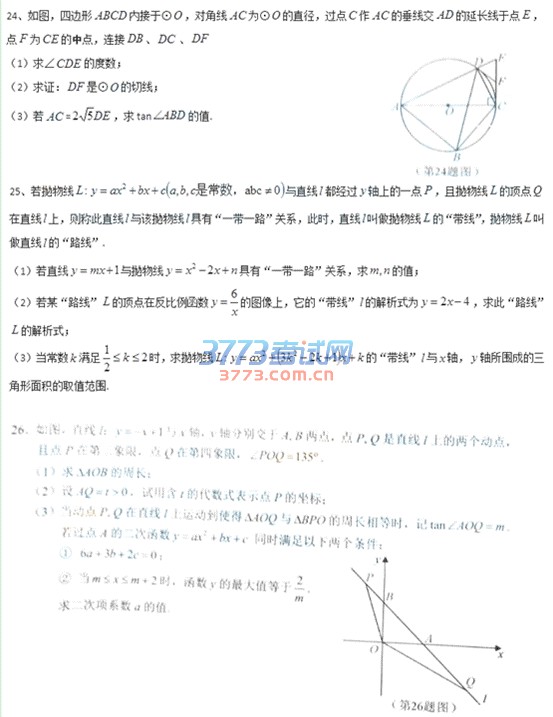 24、如图，四边形ABCD内接于⊙O，对角线AC为⊙O的直径，过点C作AC的垂线交AD的延长线于点E，
点F为CE的中点，连接DB、DC、DF
（1）求∠CDE的度数；
（2）求证：DF是⊙O的切线；
（3）若AC=2√5DE，求tan∠ABD的值.
E
D
F
A
O
C
B
（第24题图）
25、若抛物线L: y=ax²+bx+c(a,b,c是常数，abc≠0)与直线l都经过y轴上的一点P，且抛物线L的顶点Q
在直线l上，则称此直线l与该抛物线l具有“一带一路”关系，此时，直线l叫做抛物线L的“带线”，抛物线L叫
做直线l的“路线”.
（1）若直线y=mx+1与抛物线y=x²-2x+n具有“一带一路”关系，求m,n的值；
（2）若某“路线”L的顶点在反比例函数y=6/x的图像上，它的“带线”l的解析式为y=2x-4，求此“路线”
L的解析式；
（3）当常数k满足1/2≤k≤2时，求抛物线L: y=ax²+(3k²-2k+1)x+k的“带线”l与x轴，y轴所围成的三
角形面积的取值范围.
3773考试网
3773.com.cn
26．如图，直线l：y=-x+1与x轴，y轴分别交于A,B两点，点P,Q是直线l上的两个动点，
且点P在第二象限，点Q在第四象限，∠POQ=135°.
（1）求△AOB的周长；
（2）设AQ=t>0，试用含t的代数式表示点P的坐标；
（3）当动点P,Q在直线l上运动到使得△AOQ与△BPO的周长相等时，记tan∠AOQ=m.
若过点A的二次函数y=ax²+bx+c同时满足以下两个条件：
① 6a+3b+2c=0；
② 当m≤x≤m+2时，函数y的最大值等于2/m.
求二次项系数a的值.
y
P
B
O
A
x
Q
l
（第26题图）